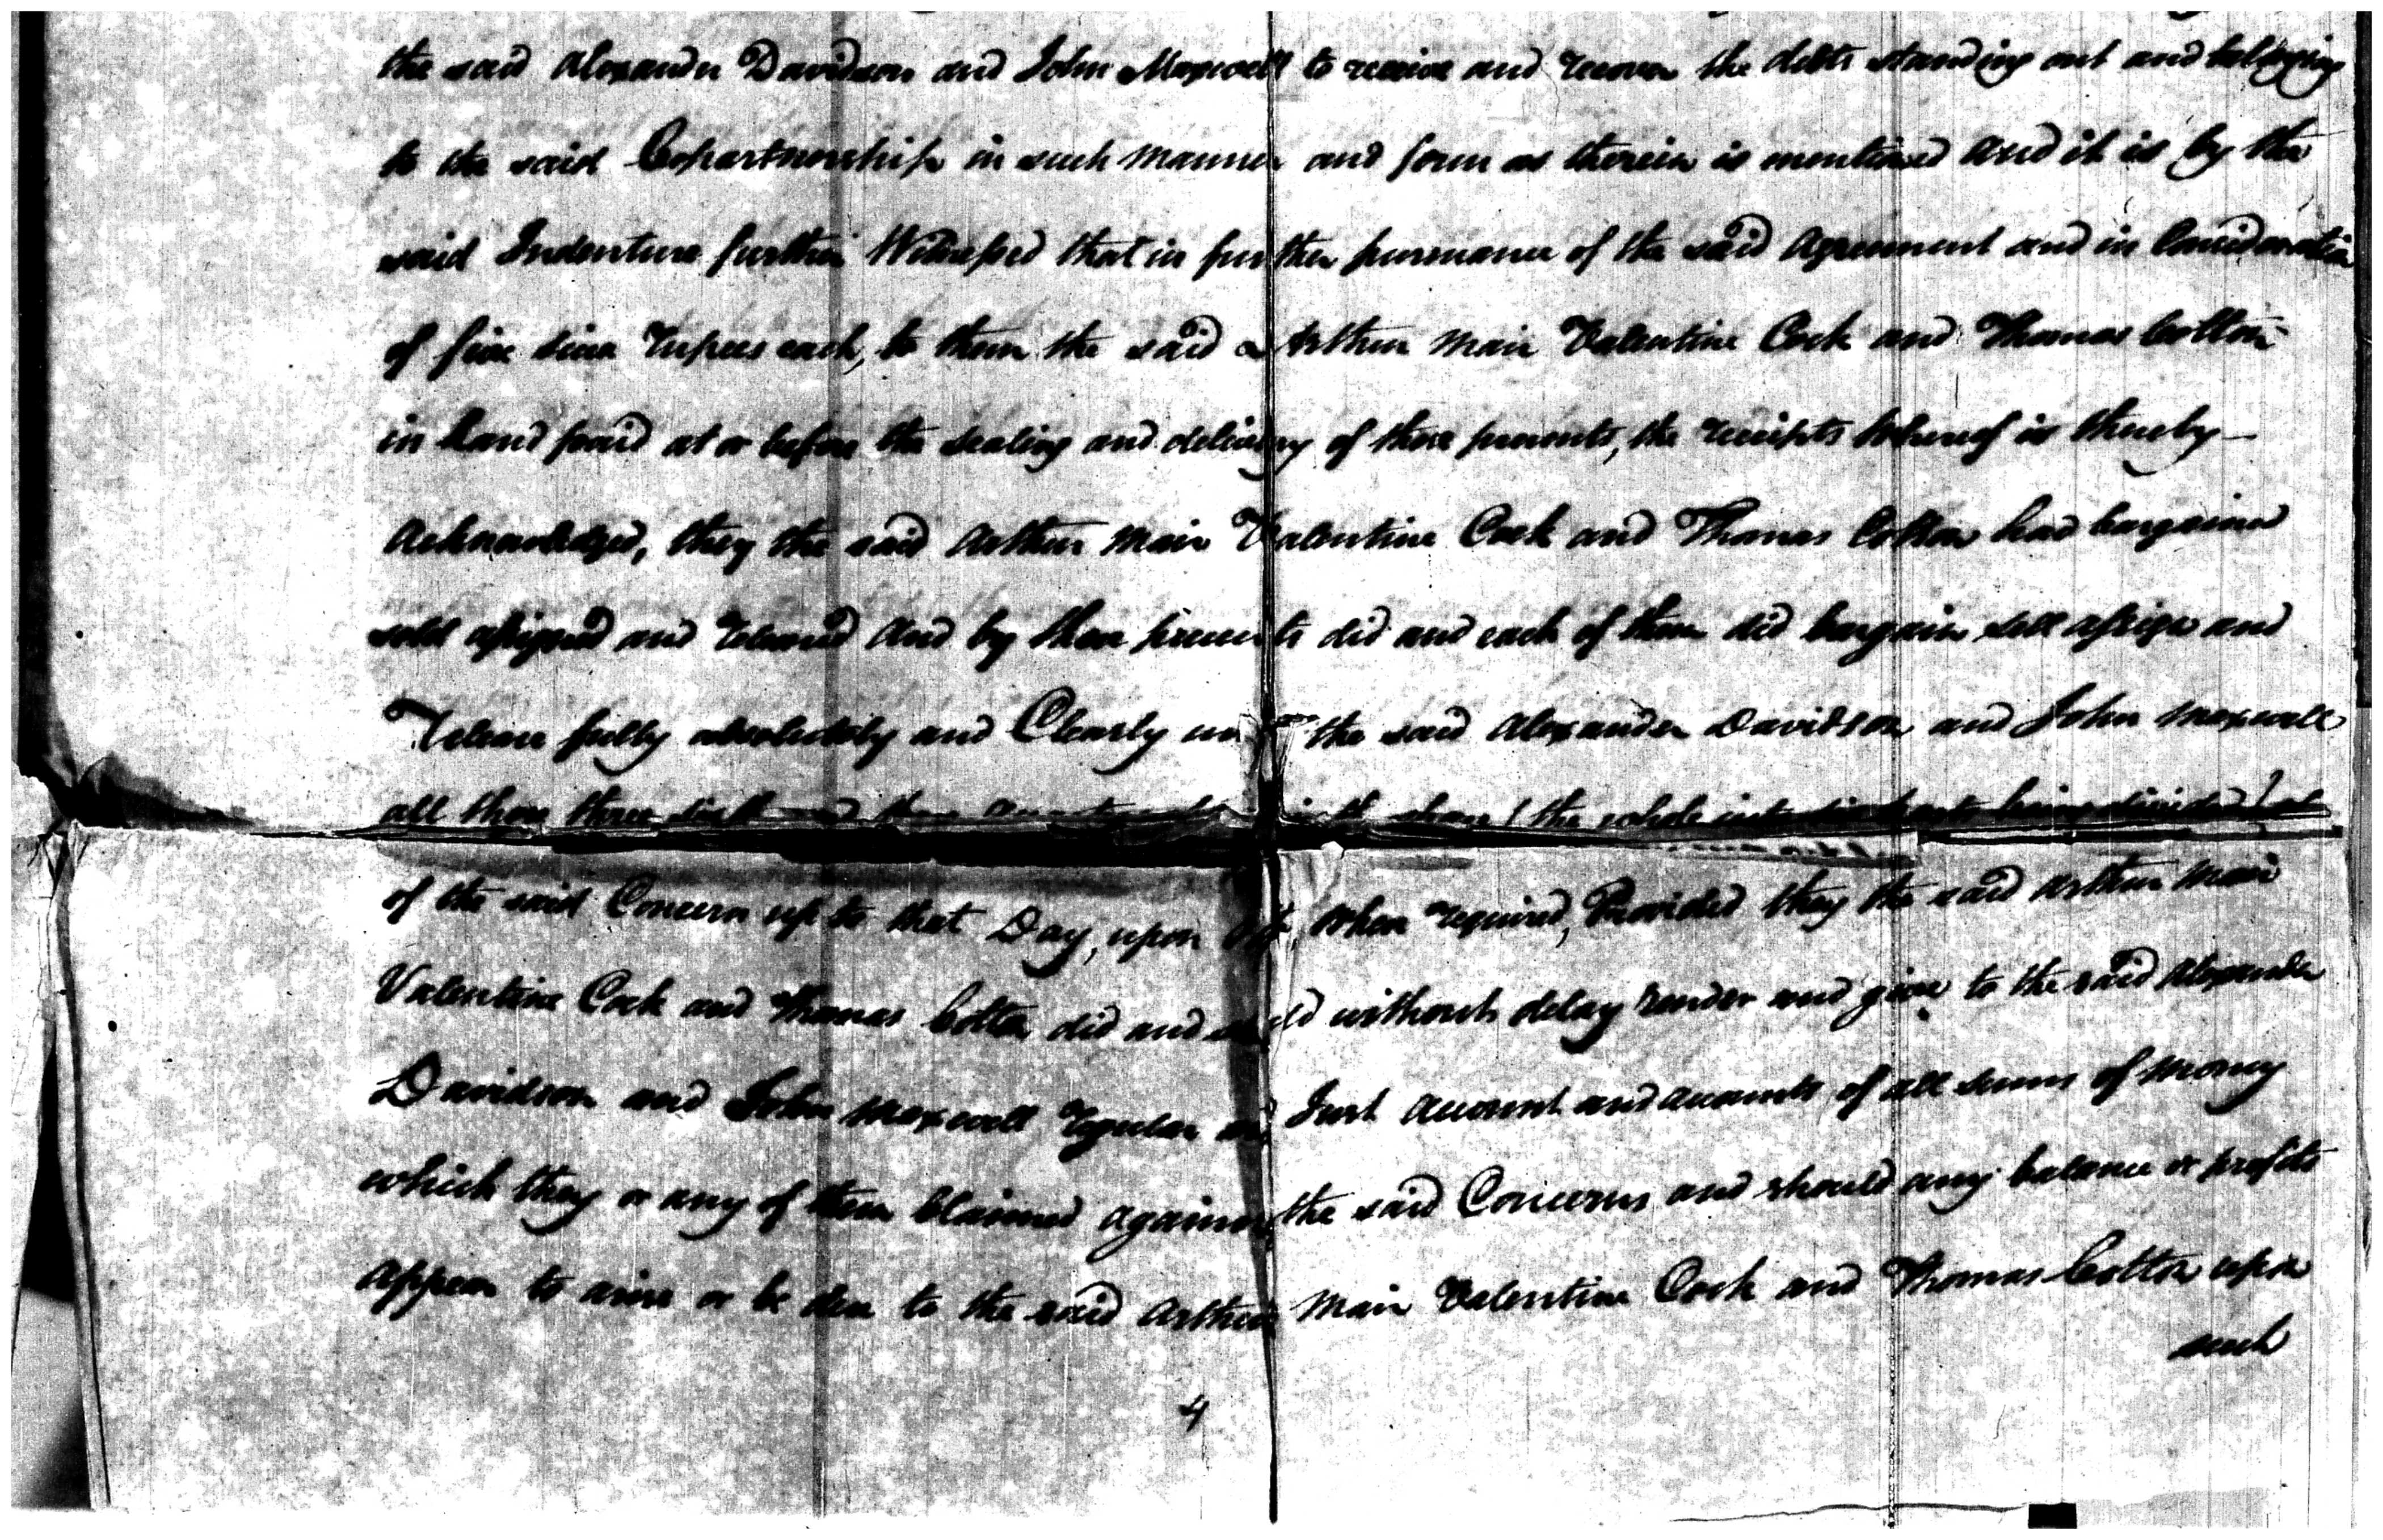 the said Alexander Davidson and John Maxwell to receive and recover the debts standing out and belonging
to the said Copartnership in such manner and form as therein is mentioned and it is by the
said Indenture further Witnessed that in further pursuance of the said Agreement and in Consideration
of five sicca Rupees each, to them the said Arthur Mair Valentine Cock and Thomas Cotton
in hand paid at or before the sealing and delivery of these presents, the receipts whereof is thereby
Acknowledged, they the said Arthur Mair Valentine Cock and Thomas Cotton had bargained
sold assigned and released and by these presents did and each of them did bargain sell assign and
release fully absolutely and Clearly unto the said Alexander Davidson and John Maxwell
all those three sixth share (the whole into six parts being divided)
of the said Concern up to that Day, upon when required, Provided they the said Arthur Mair
Valentine Cock and Thomas Cotton did and should without delay render and give to the said Alexander
Davidson and John Maxwell regular and Just account and accounts of all sums of money
which they or any of them Claimed against the said Concerns and should any balance or profits
appear to arise or be due to the said Arthur Mair Valentine Cock and Thomas Cotton upon
such
4